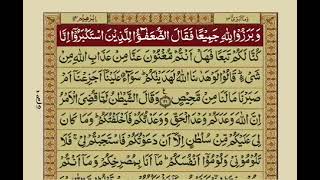 وَ بَرَزُوْا لِلّٰهِ جَمِيْعًا فَقَالَ الضُّعَفٰٓؤُا لِلَّذِيْنَ اسْتَكْبَرُوْۤا اِنَّا
كُنَّا لَكُمْ تَبَعًا فَهَلْ اَنْتُمْ مُّغْنُوْنَ عَنَّا مِنْ عَذَابِ اللّٰهِ مِنْ
شَیْءٍ ؕ قَالُوْا لَوْ هَدٰىنَا اللّٰهُ لَهَدَيْنٰكُمْ ؕ سَوَآءٌ عَلَيْنَاۤ اَجَزِعْنَاۤ اَمْ
صَبَرْنَا مَا لَنَا مِنْ مَّحِيْصٍ ﴿۲۱﴾ وَ قَالَ الشَّيْطٰنُ لَمَّا قُضِیَ الْاَمْرُ
اِنَّ اللّٰهَ وَعَدَكُمْ وَعْدَ الْحَقِّ وَ وَعَدْتُّكُمْ فَاَخْلَفْتُكُمْ ؕ وَ مَا كَانَ
لِیَ عَلَيْكُمْ مِّنْ سُلْطٰنٍ اِلَّاۤ اَنْ دَعَوْتُكُمْ فَاسْتَجَبْتُمْ لِیْ ۚ فَلَا
تَلُوْمُوْنِیْ وَ لُوْمُوْۤا اَنْفُسَكُمْ ؕ مَاۤ اَنَا بِمُصْرِخِكُمْ وَ مَاۤ اَنْتُمْ